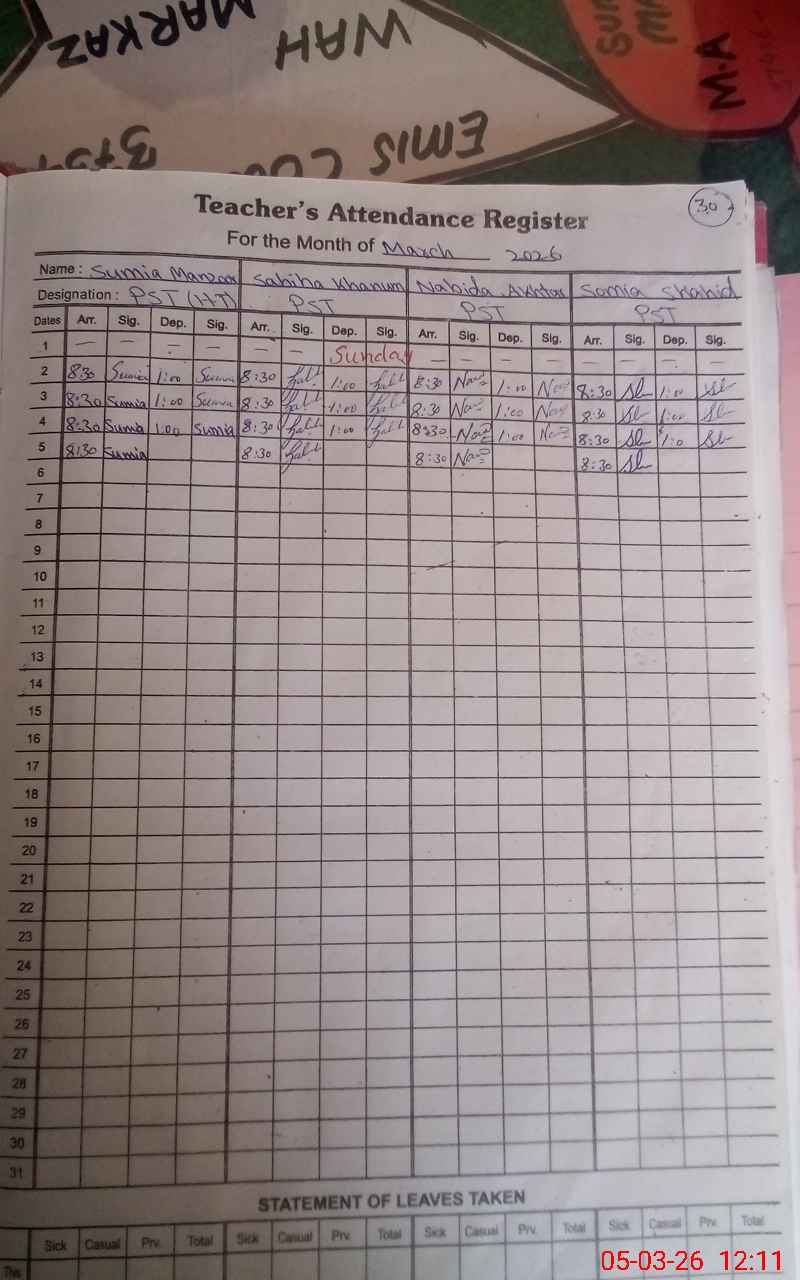 WAH
MARKAZ
EMIS CO
M.A
30
Teacher's Attendance Register
For the Month of March 2026
Name : Sumia Manzoor Sabiha Khanum Nabida Akhtar Somia Shahid
Designation : PST (HT) PST PST PST
Dates Arr. Sig. Dep. Sig. Arr. Sig. Dep. Sig. Arr. Sig. Dep. Sig. Arr. Sig. Dep. Sig.
1 — — — — — — Sunday — — — — — — — —
2 8:30 Sumia 1:00 Sumia 8:30 1:00 8:30 1:00 8:30 1:00
3 8:30 Sumia 1:00 Sumia 8:30 1:00 8:30 1:00 8:30 1:00
4 8:30 Sumia 1:00 Sumia 8:30 1:00 8:30 1:00 8:30 1:0
5 8:30 Sumia 8:30 8:30 8:30
6
7
8
9
10
11
12
13
14
15
16
17
18
19
20
21
22
23
24
25
26
27
28
29
30
31
STATEMENT OF LEAVES TAKEN
Sick Casual Prv. Total Sick Casual Prv. Total Sick Casual Prv. Total Sick Casual Prv. Total
This
05-03-26 12:11